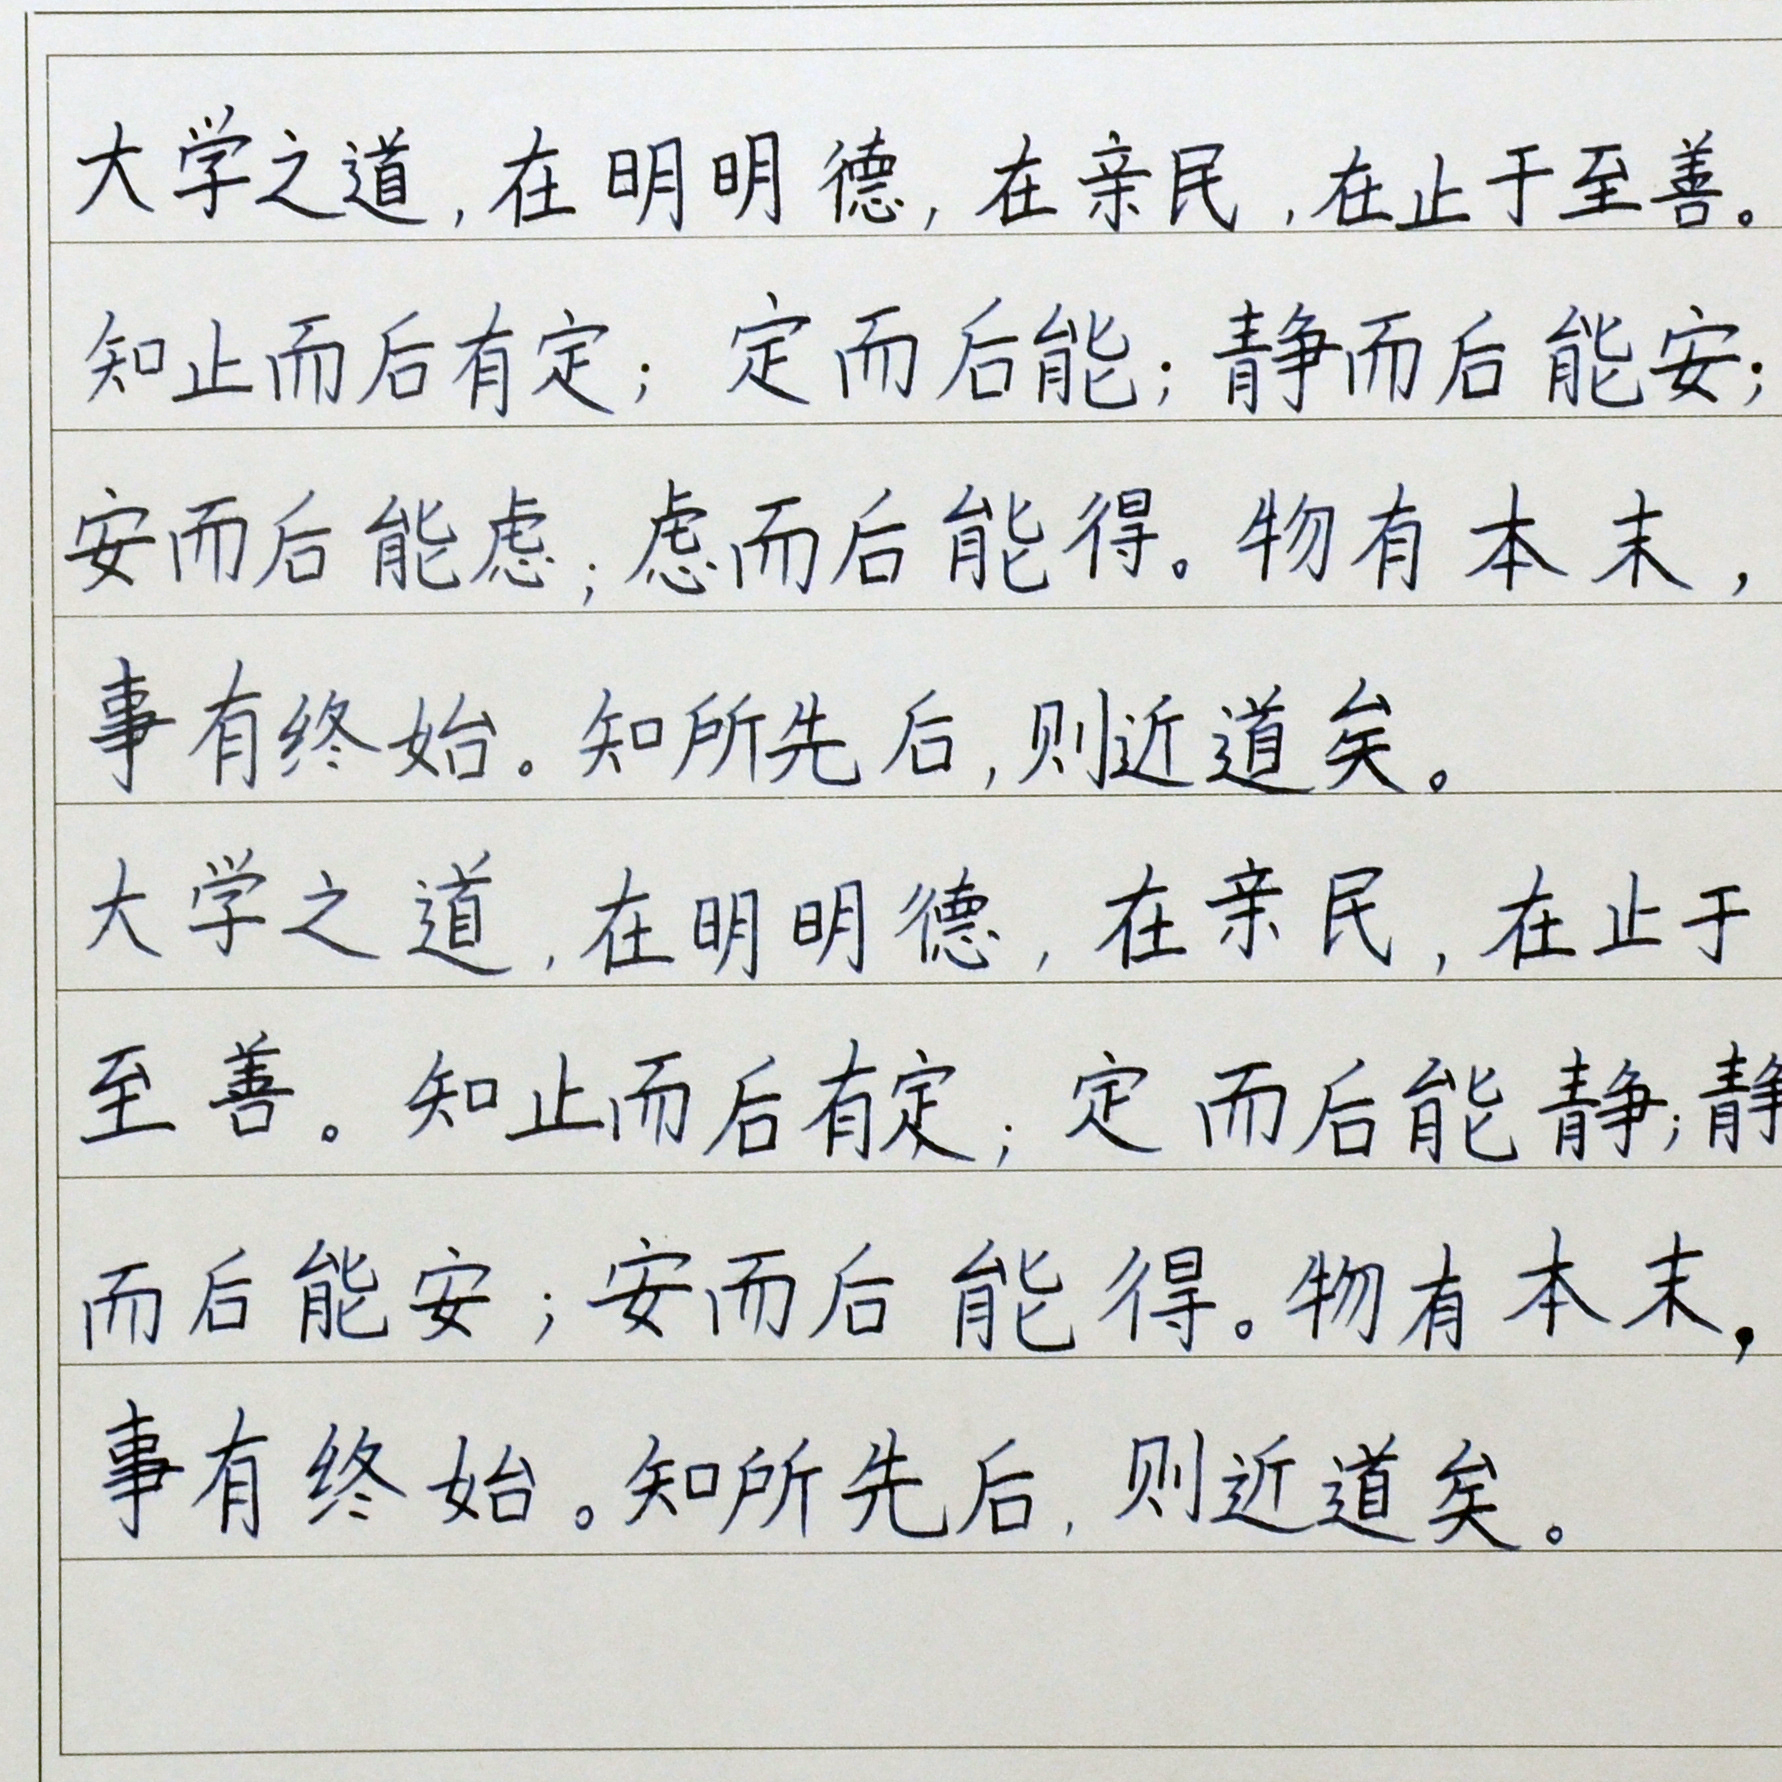 大学之道,在明明德,在亲民,在止于至善。
知止而后有定;定而后能;静而后能安;
安而后能虑;虑而后能得。物有本末,
事有终始。知所先后,则近道矣。
大学之道,在明明德,在亲民,在止于
至善。知止而后有定;定而后能静;静
而后能安;安而后能得。物有本末,
事有终始。知所先后,则近道矣。